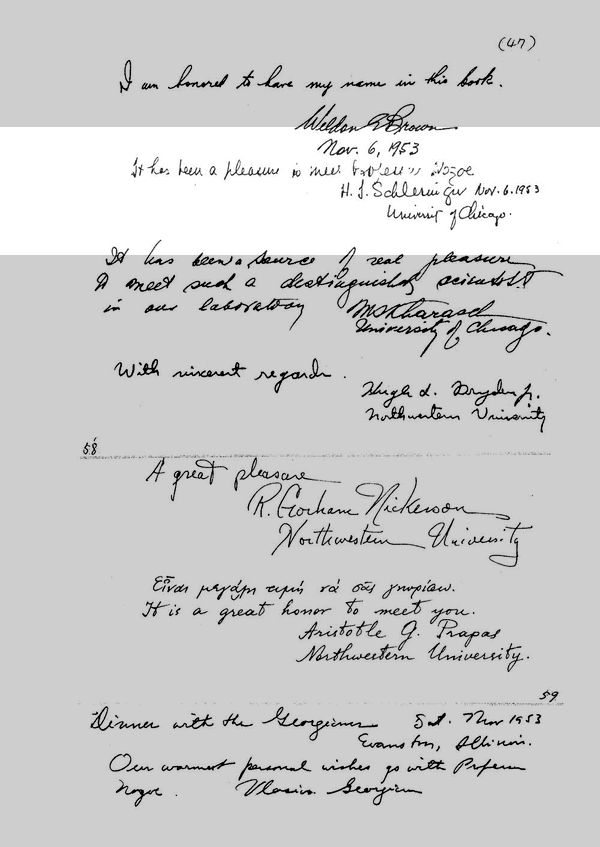 (47)
I am honored to have my name in this book.
Weldon G Brown
Nov. 6, 1953
It has been a pleasure to meet Professor Nozoe
H. I. Schlesinger Nov. 6. 1953
University of Chicago.
It has been a source of real pleasure
to meet such a distinguished scientist
in our laboratory MS Kharasch
University of Chicago.
With sincerest regards.
Hugh L. Dryden Jr.
Northwestern University
58
A great pleasure
R. Gorham Nickerson
Northwestern University
Εἶναι μεγάλη τιμή νά σᾶς γνωρίσω.
It is a great honor to meet you.
Aristotle G. Prapas
Northwestern University.
59
Dinner with the Georgians Sat. Nov 1953
Evanston, Illinois.
Our warmest personal wishes go with Professor
Nozoe. Georgian